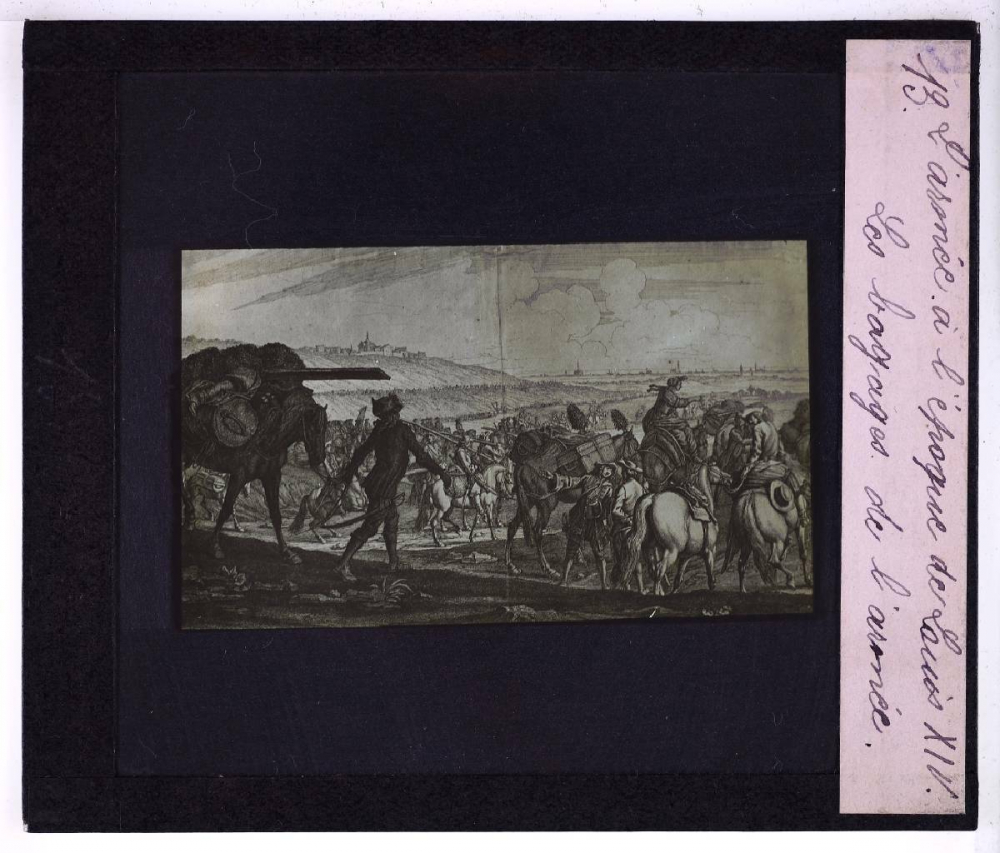 13. L'armée à l'époque de Louis XIV.
Les bagages de l'armée.